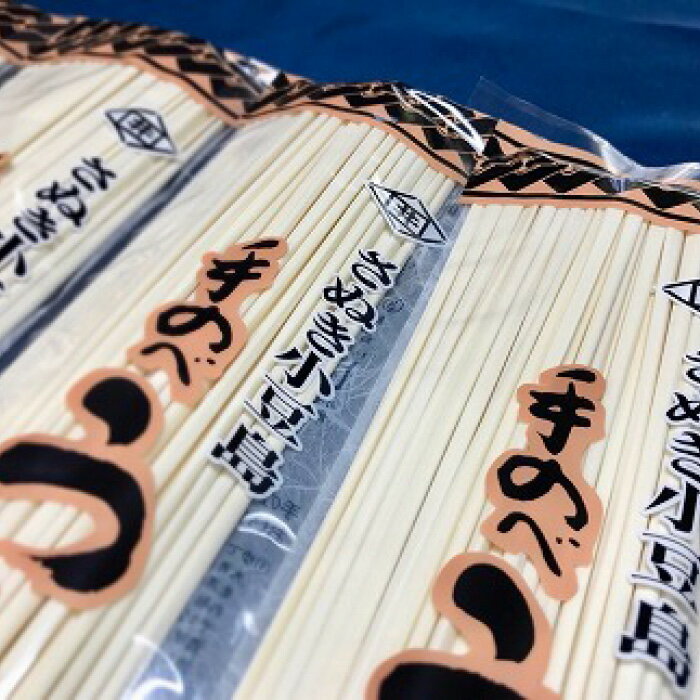 さぬき小
さぬき小豆島
手のべ
う
さぬき小豆島
手のべ
う